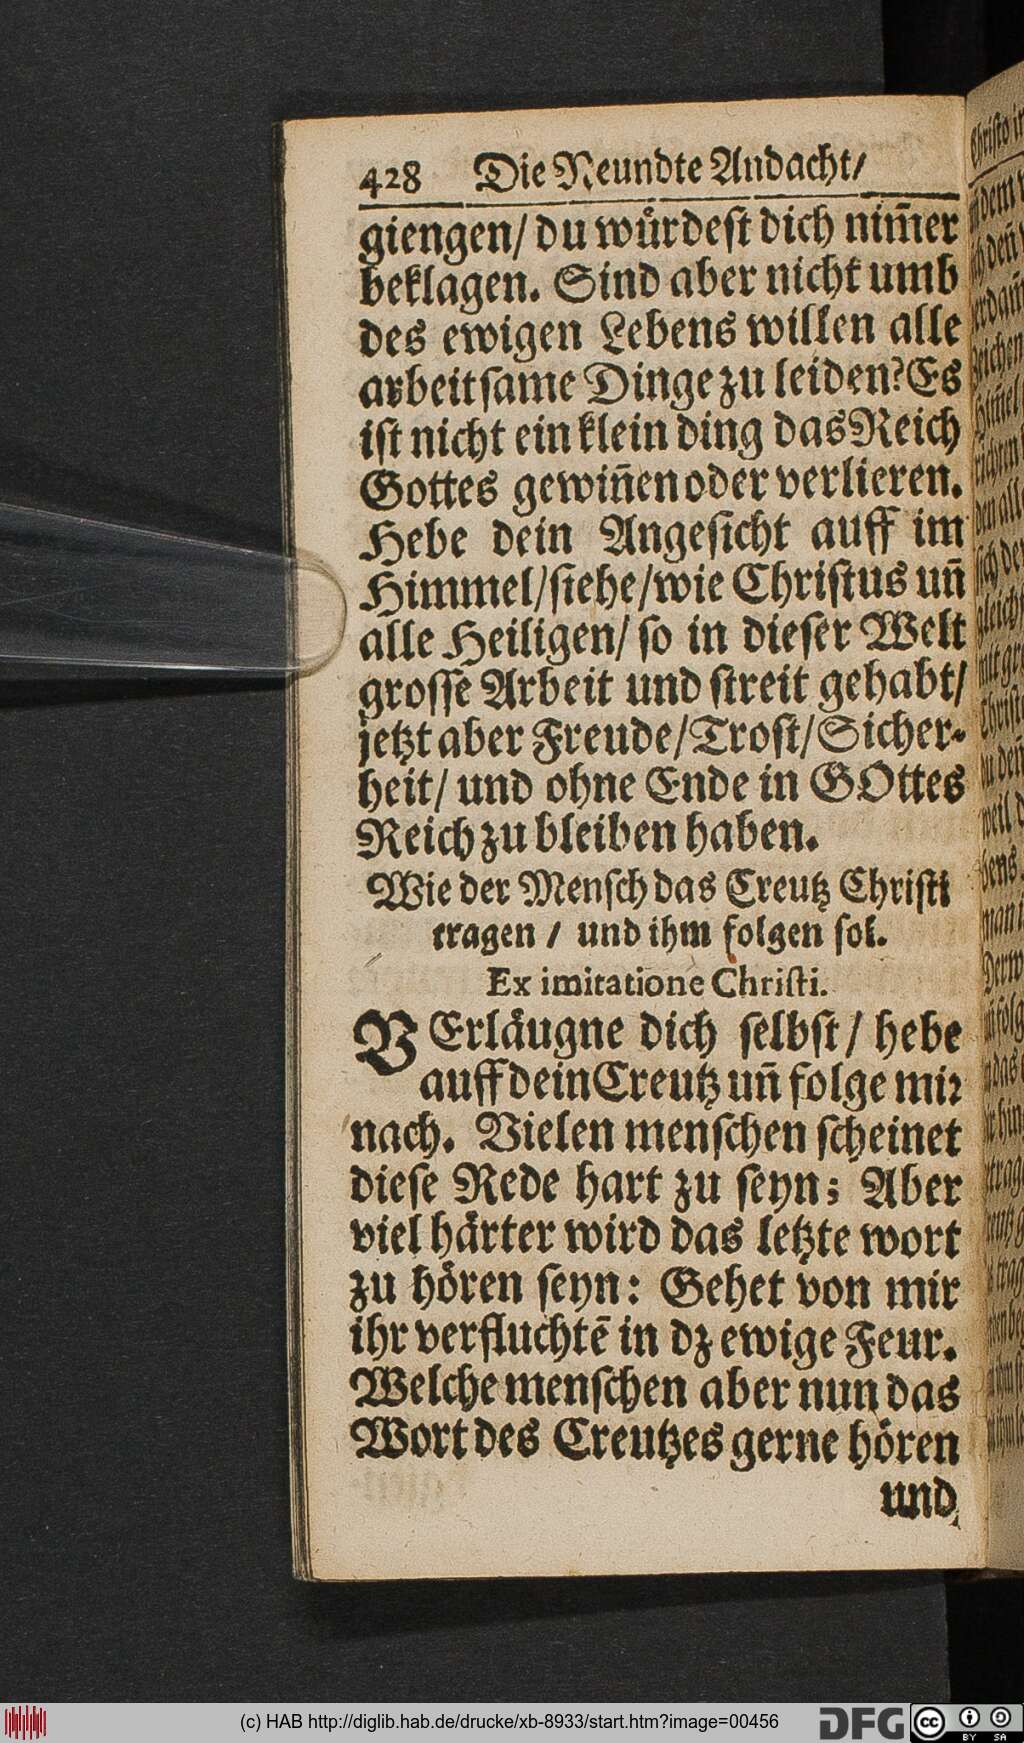 428 Die Neundte Andacht/
giengen/ du würdest dich nim̃er
beklagen. Sind aber nicht umb
des ewigen Lebens willen alle
arbeitsame Dinge zu leiden? Es
ist nicht ein klein ding das Reich
Gottes gewiñen oder verlieren.
Hebe dein Angesicht auff im
Himmel/ siehe/ wie Christus uñ
alle Heiligen/ so in dieser Welt
grosse Arbeit und streit gehabt/
jetzt aber Freude/ Trost/ Sicher-
heit/ und ohne Ende in GOttes
Reich zu bleiben haben.
Wie der Mensch das Creutz Christi
tragen / und ihm folgen sol.
Ex imitatione Christi.
VErläugne dich selbst/ hebe
auff dein Creutz uñ folge mir
nach. Vielen menschen scheinet
diese Rede hart zu seyn; Aber
viel härter wird das letzte wort
zu hören seyn: Gehet von mir
ihr verfluchtē in dz ewige Feur.
Welche menschen aber nun das
Wort des Creutzes gerne hören
und
(c) HAB http://diglib.hab.de/drucke/xb-8933/start.htm?image=00456
DFG
cc BY SA